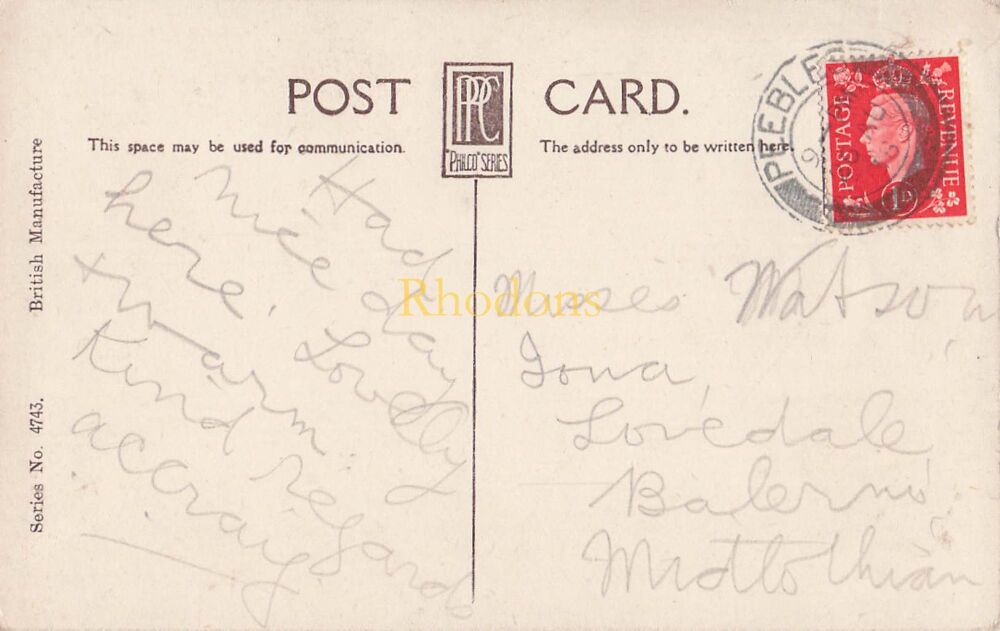 POST CARD.
PPC
"PHILCO" SERIES
This space may be used for communication.
The address only to be written here.
British Manufacture
Series No. 4743.
PEEBLES
POSTAGE
REVENUE
1D
Rhodons
Had
Nice day
here. Lovely
& warm
Kind regards
Misses Watson
Iona,
Lovedale
Balerno
Midlothian